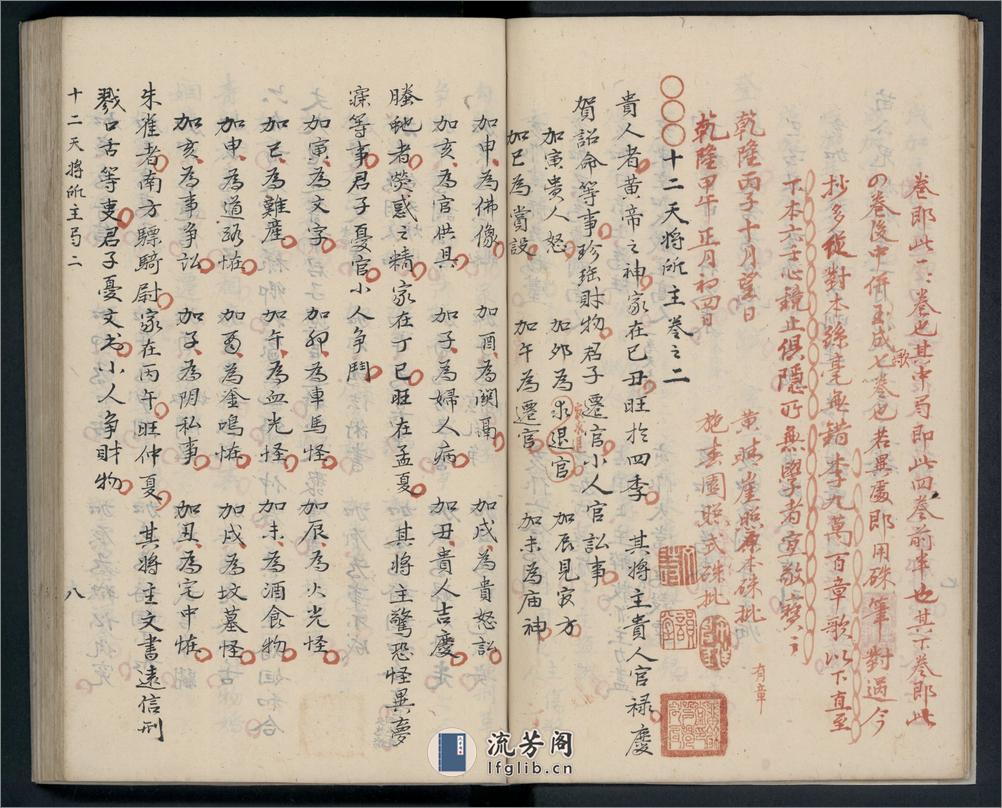 卷即此一二卷也其七局即此四卷前半也其下卷即此
の卷後中併玉成七卷也若異處即用硃筆對過今
歌
抄多從對本孫毫無錯李九萬百章歌以下直至
下本六壬心鏡止俱隱所無學者宜敬寶之
乾隆丙子十月望日 黄 崖照原本硃批
乾隆甲午正月初四日 施春園照式硃批
有章
〇〇〇十二天将所主 卷之二
貴人者黄帝之神家在己丑旺於四季 其將主貴人官禄慶
賀詔命等事珍珤財物君子遷官小人官訟事
加寅貴人怒 加卯為求退官 加辰見哀方
加巳為賞設 加午為遷官 加未為庙神
加申為佛像 加酉為鬭鬲 加戌為貴怒訟
加亥為官供具 加子為婦人病 加丑貴人吉慶
螣虵者熒惑之精家在丁巳旺在孟夏 其將主驚恐怪異夢
寐等事君子憂官小人争鬥
加寅為文字 加卯為車馬怪 加辰為火光怪
加巳為難産 加午為血光怪 加未為酒食物
加申為道路怪 加酉為釜鳴怪 加戌為坟墓怪
加亥為事争訟 加子為阴私事 加丑為宅中怪
朱雀者南方驃騎尉家在丙午旺仲夏 其將主文書遠信刑
戮口舌等叓君子憂文书小人争財物
十二天将所主局二 八
流芳阁
lfglib.cn